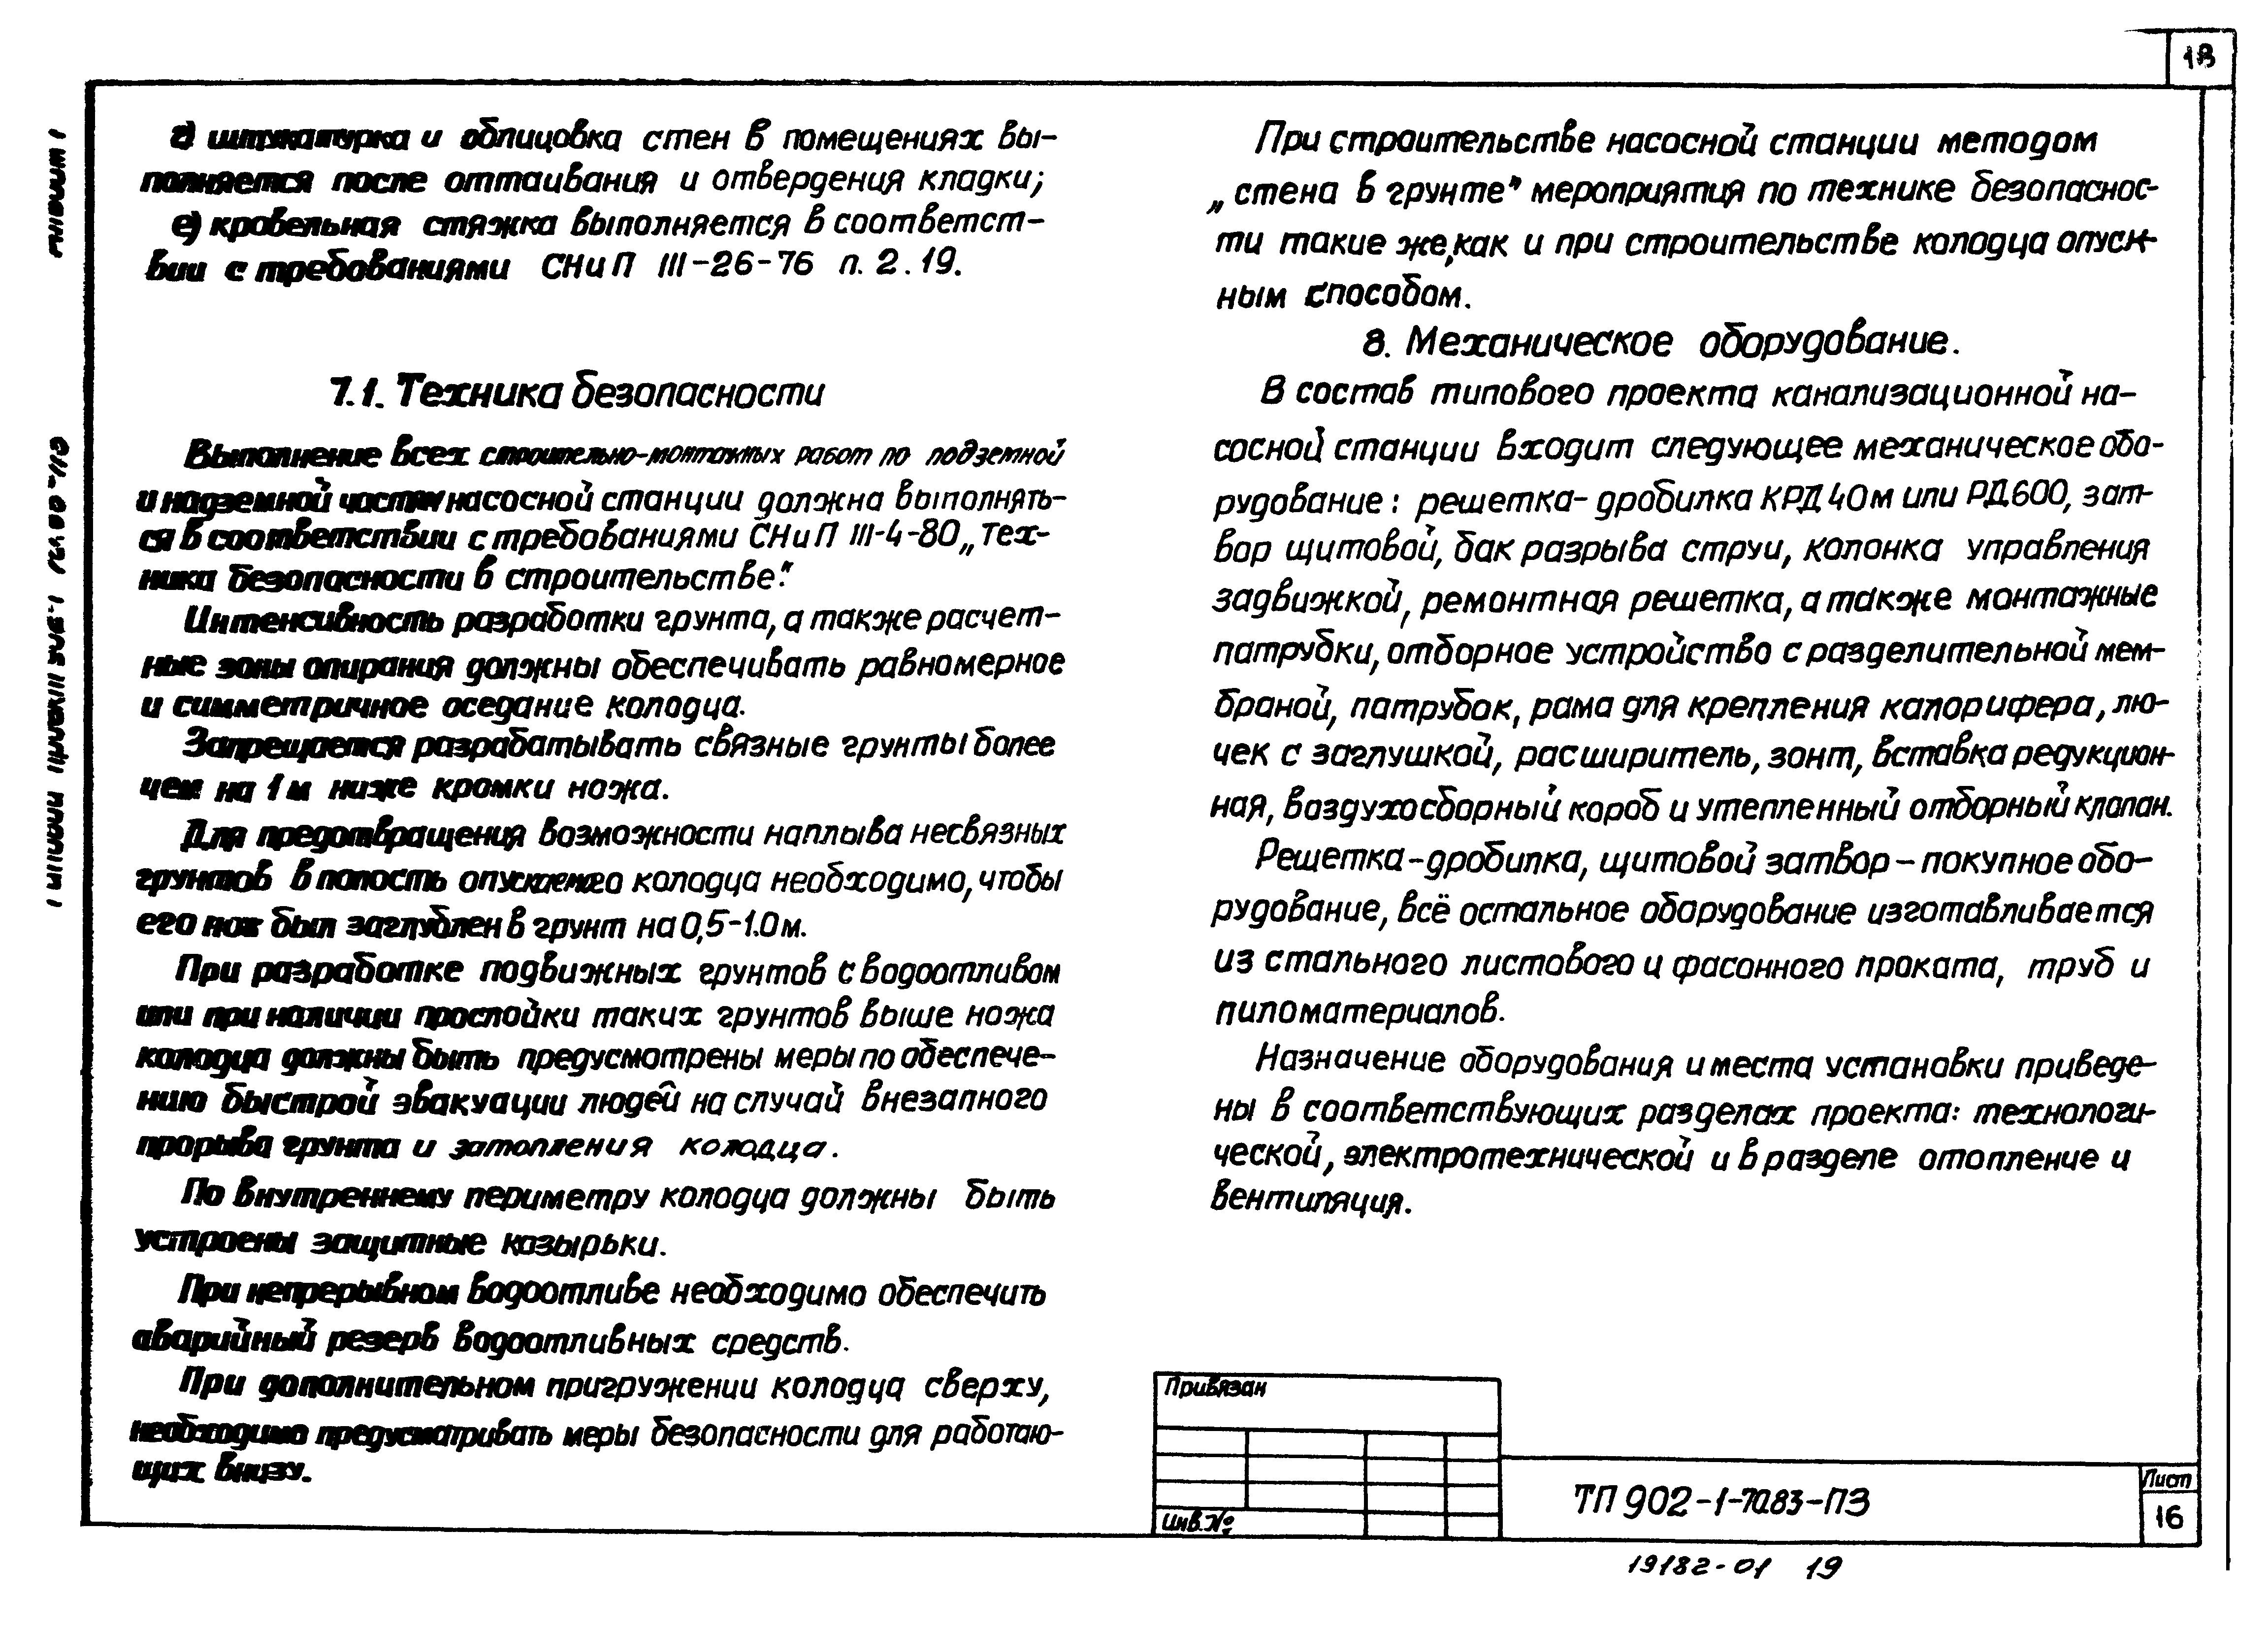 18
г) штукатурка и облицовка стен в помещениях вы-
полняется после оттаивания и отвердения кладки;
е) кровельная стяжка выполняется в соответст-
вии с требованиями СНиП III-26-76 п. 2.19.
7.1. Техника безопасности
Выполнение всех строительно-монтажных работ по подземной
и надземной частям насосной станции должна выполнять-
ся в соответствии с требованиями СНиП III-4-80 „Тех-
ника безопасности в строительстве."
Интенсивность разработки грунта, а также расчет-
ные зоны опирания должны обеспечивать равномерное
и симметричное оседание колодца.
Запрещается разрабатывать связные грунты более
чем на 1 м ниже кромки ножа.
Для предотвращения возможности наплыва несвязных
грунтов в полость опускаемого колодца необходимо, чтобы
его нож был заглублен в грунт на 0,5-1.0 м.
При разработке подвижных грунтов с водоотливом
или при наличии прослойки таких грунтов выше ножа
колодца должны быть предусмотрены меры по обеспече-
нию быстрой эвакуации людей на случай внезапного
прорыва грунта и затопления колодца.
По внутреннему периметру колодца должны быть
устроены защитные козырьки.
При непрерывном водоотливе необходимо обеспечить
аварийный резерв водоотливных средств.
При дополнительном пригружении колодца сверху,
необходимо предусматривать меры безопасности для работаю-
щих внизу.
При строительстве насосной станции методом
„стена в грунте" мероприятия по технике безопаснос-
ти такие же, как и при строительстве колодца опуск-
ным способом.
8. Механическое оборудование.
В состав типового проекта канализационной на-
сосной станции входит следующее механическое обо-
рудование: решетка-дробилка КРД 40м или РД 600, зат-
вор щитовой, бак разрыва струи, колонка управления
задвижкой, ремонтная решетка, а также монтажные
патрубки, отборное устройство с разделительной мем-
браной, патрубок, рама для крепления калорифера, лю-
чек с заглушкой, расширитель, зонт, вставка редукцион-
ная, воздухосборный короб и утепленный отборный клапан.
Решетка-дробилка, щитовой затвор – покупное обо-
рудование, всё остальное оборудование изготавливается
из стального листового и фасонного проката, труб и
пиломатериалов.
Назначение оборудования и места установки приведе-
ны в соответствующих разделах проекта: технологи-
ческой, электротехнической и в разделе отопление и
вентиляция.
Привязан
Инв.№
ТП 902-1-70.83-ПЗ
Лист
16
19182-01 19